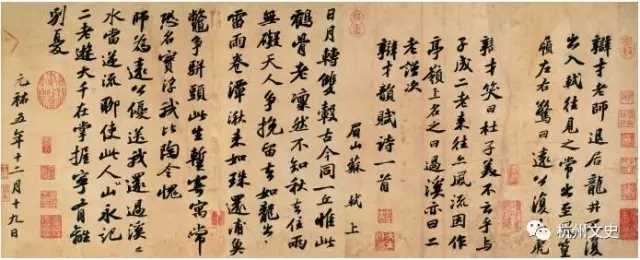 辯才老師退居龍井不復
出入軾往見之常出至篁
嶺左右驚曰遠公復虎
辯才笑曰杜子美不云乎與
子成二老來往亦風流因作
亭嶺上名之曰過溪亦曰二
老謹次
辯才韻賦詩一首
眉山蘇軾上
日月轉雙轂古今同一丘惟此
鶴骨老凜然不知秋去住兩
無礙天人爭挽留去如龍出
雷雨卷潭湫來如珠還浦魚
鱉爭駢頭此生暫寄寓常
恐名實浮我比陶令愧
師為遠公優送我還過溪溪
水當逆流聊使此人山永記
二老遊大千在掌握寧有離
別憂
元祐五年十二月十九日
杭州文史